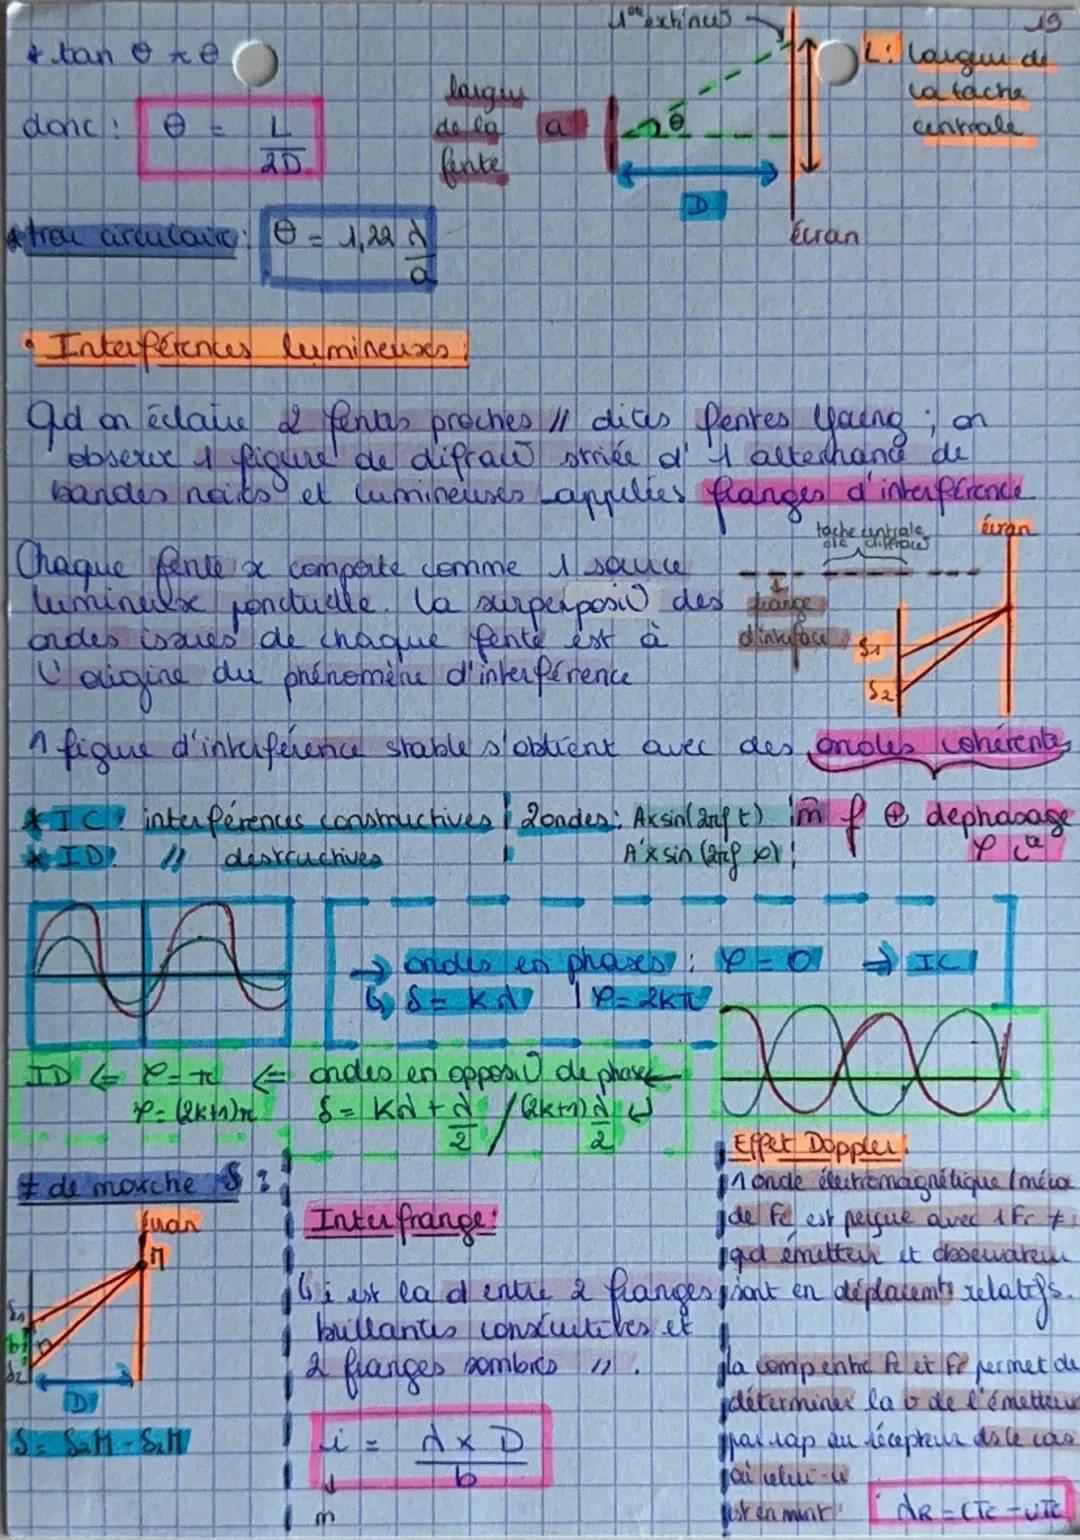 19
1ère extincº
* tan θ ≈ θ
L: largeur de
la tache
centrale
largeur
de la
fente
a
θ
D
écran
donc : θ = L / 2D
* trou circulaire : θ = 1,22 λ / a
• Interférences lumineuses :
Qd on éclaire 2 fentes proches // dites fentes Young ; on
observe 1 figure de difracº striée d' 1 alternance de
bandes noires et lumineuses appelées franges d'interférence
Chaque fente se comporte comme 1 source
lumineuse ponctuelle. La surperposiº des
ondes issues de chaque fente est à
l'origine du phénomène d'interférence
tache centrale
de
écran
frange
S1
S2
1 figure d'interférence stable s'obtient avec des ondes cohérentes
* IC : interférences constructives
* ID : // destructives
2 ondes : A×sin(2πf t)
A'×sin(2πf
m̂ f ⊕ dephasage
φ
→ ondes en phases : φ = 0 ⇒ IC
↳ δ = kλ | φ = 2kπ
ID ⇐ φ = π ⇐ ondes en opposiº de phase
φ = (2k+1)π
δ = kλ + λ/2 / (2k+1) λ/2
≠ de marche δ :
écran
M
S1
b
S2
D
δ = S2M - S1M
Interfrange :
↳ i est la d entre 2 franges
brillantes consécutives et
2 franges sombres // .
i = λ × D / b
↓
m
Effet Doppler :
1 onde électromagnétique / méca
de Fe est perçue avec 1 Fr ≠
qd émetteur et observateur
sont en déplacemt relatifs.
la comp entre Fe et Fr permet de
déterminer la v de l'émetteur
par rap au récepteur ds le cas
où celui-ci
est en mvmt
λR = cTe - vTe